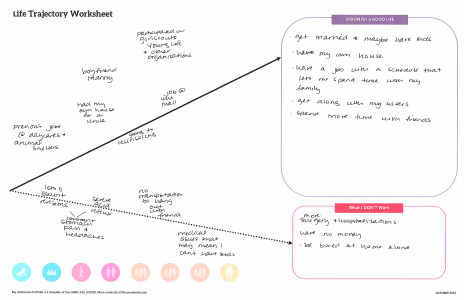 Life Trajectory Worksheet
participated in
girlscouts
Young Life
+ other
organizations
boyfriend
Manny
had my
own house
for a
while
job @
the
mall
going to
counseling
previous jobs
@ daycares +
animal
shelters
VISION for a GOOD LIFE
· get married + maybe have kids
· have my own house
· have a job with a schedule that
lets me spend time with my
family
· get along with my sisters
· spend more time with friends
lots of
severe
acid
reflux
constant
stomach
pain +
headaches
no
transportation
to hang
out
with
friends
medical
issues that
may mean I
can't have kids
What I DON'T Want
more
· surgery + hospitalizations
· have no money
· be bored at home alone